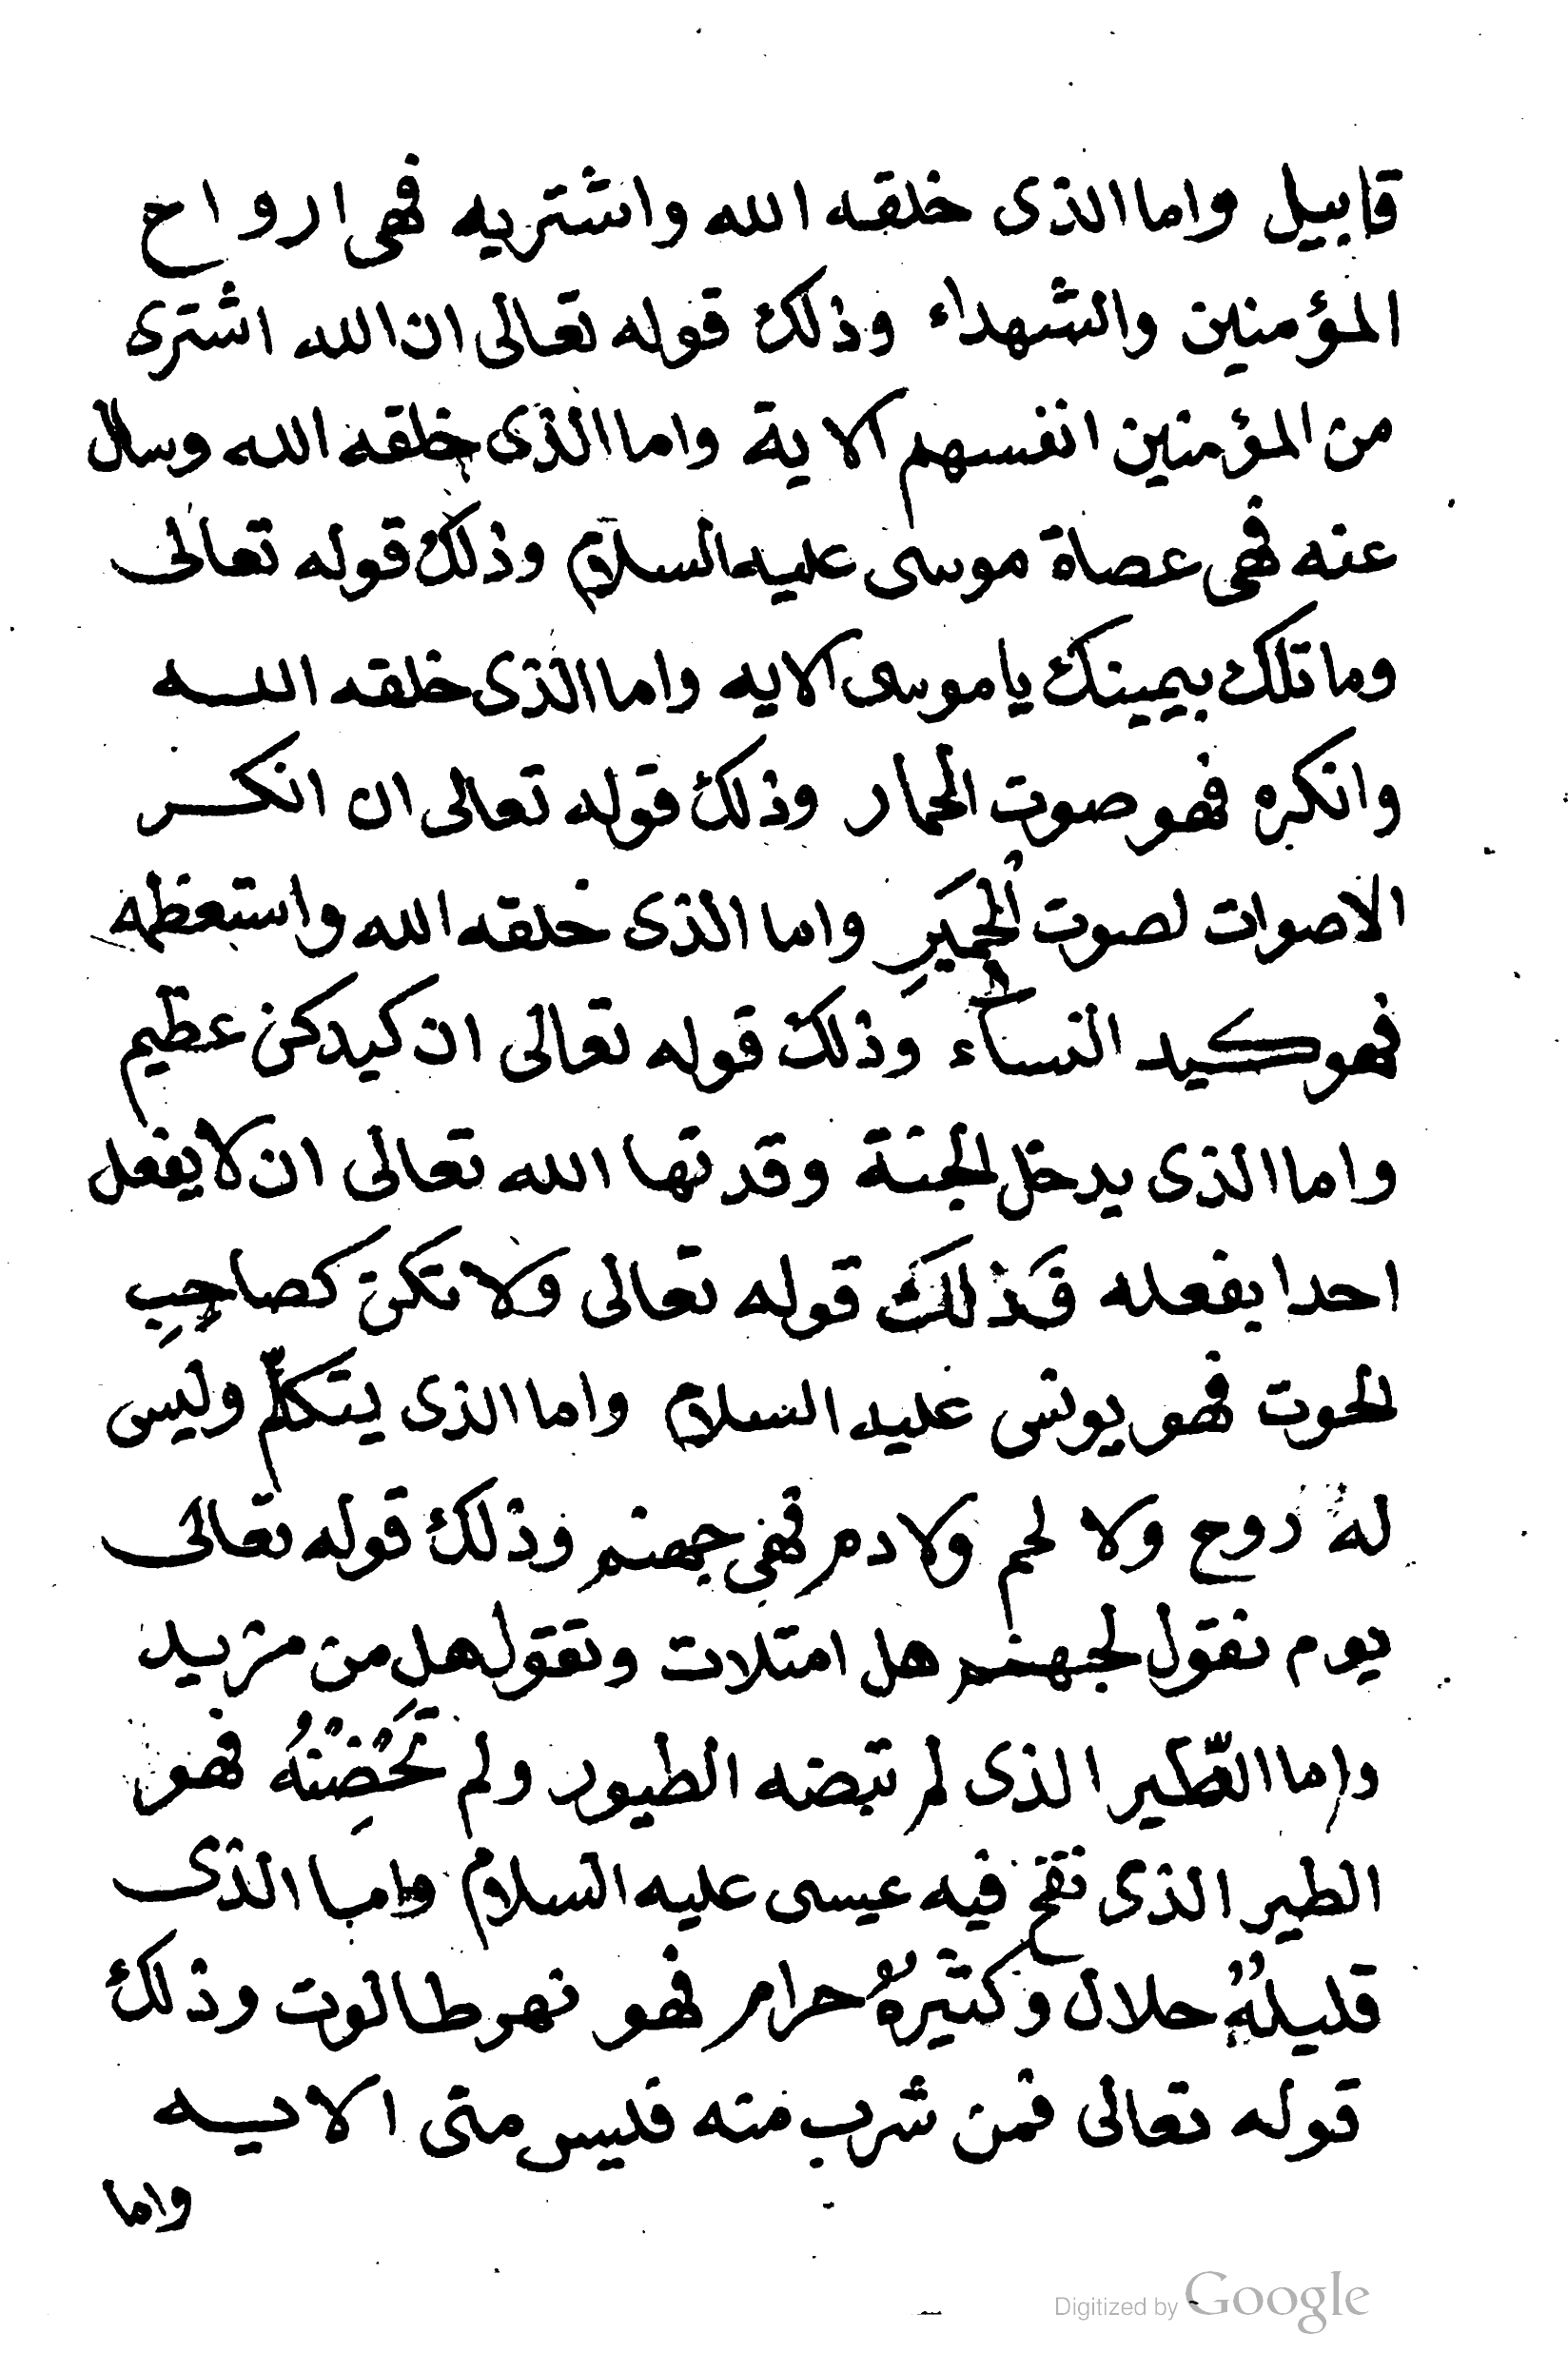 قابيل واما الذى خلقه الله واشتريه فهى ارواح
المؤمنين والشهداء وذلك قوله تعالى ان الله اشترى
من المؤمنين انفسهم الاية واما الذى خلقه الله وسال
عنه فهى عصاة موسى عليه السلام وذلك قوله تعالى
وما تلك بيمينك يا موسى الايه واما الذى خلقه الله
وانكره فهو صوت الحمار وذلك قوله تعالى ان انكر
الاصوات لصوت الْحَمَيرِ واما الذى خلقه الله واستعظمه
فهو كيد النساء وذلك قوله تعالى ان كيدكن عظيم
واما الذى يدخل الجنة وقد نها الله تعالى ان لا يفعل
احدا يفعله فَذلكَ قوله تعالى ولا تكن كصاحِبِ
لحوت فهو يونس عليه السلام واما الذى يتكلّم وليس
لهُ روح ولا لحم ولا دم فهي جهنم وذلك قوله تعالى
يوم نقول لجهنم هل امتلات وتقول هل من مزيد
واما الطّير الذى لم تبضه الطيور ولم تَحْضِنْهُ فهو
الطير الذى نفخ فيه عيسى عليه السلام واما الذى
قليلهُ حلال وكثيرهُ حرام فهو نهر طالوت وذلك
قوله تعالى فمن شرب منه فليس منى الايه
واما
Digitized by Google